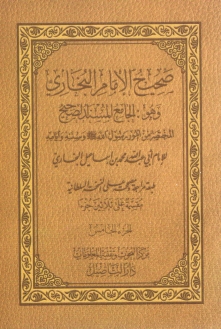 صحيح الإمام البخاري
وهو: الجامع المسند الصحيح
المختصر من أمور رسول الله ﷺ وسننه وأيامه
للإمام أبي عبد الله محمد بن إسماعيل البخاري
الجزء الخامس
مركز البحوث وتقنية المعلومات
دار التأصيل